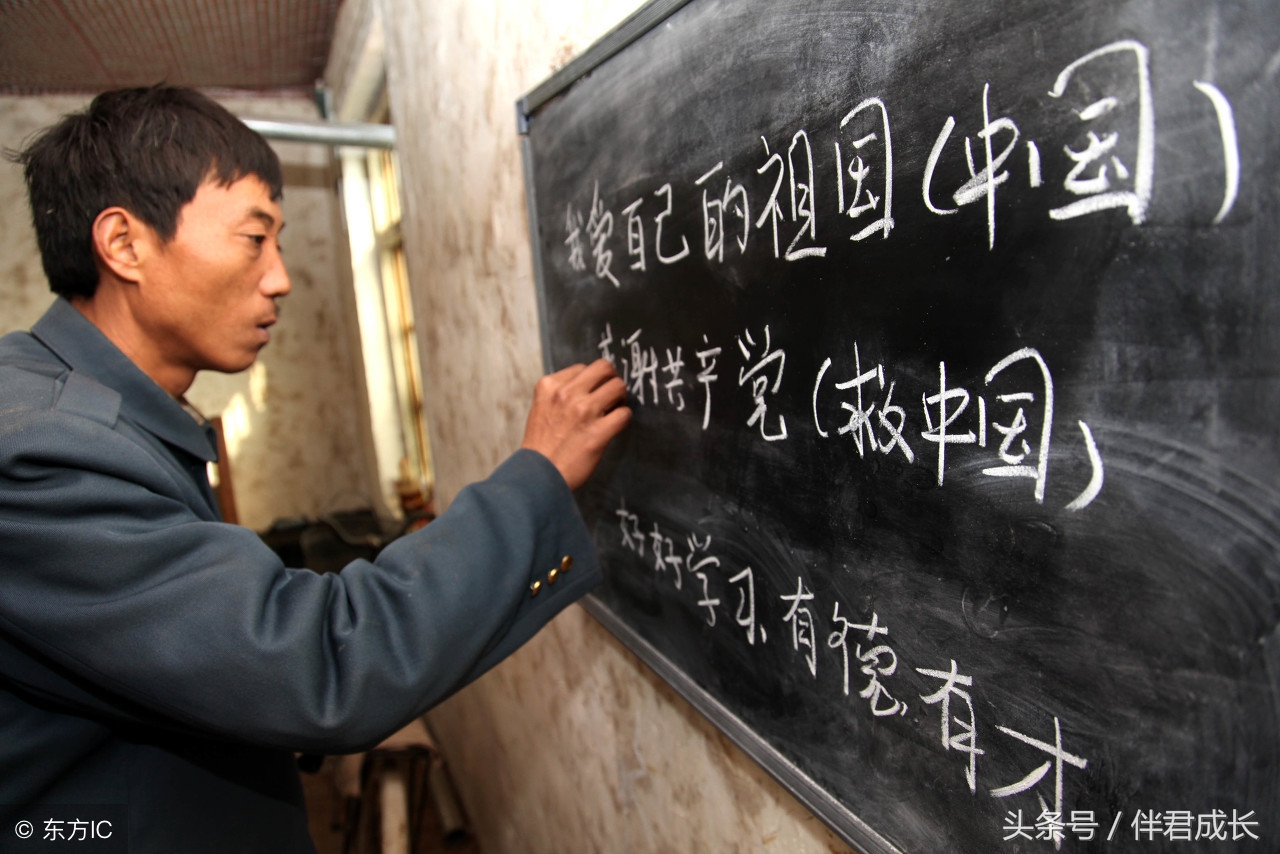 我爱自己的祖国(中国)
感谢共产党(救中国)
好好学习、有德、有才
© 东方IC
头条号 / 伴君成长